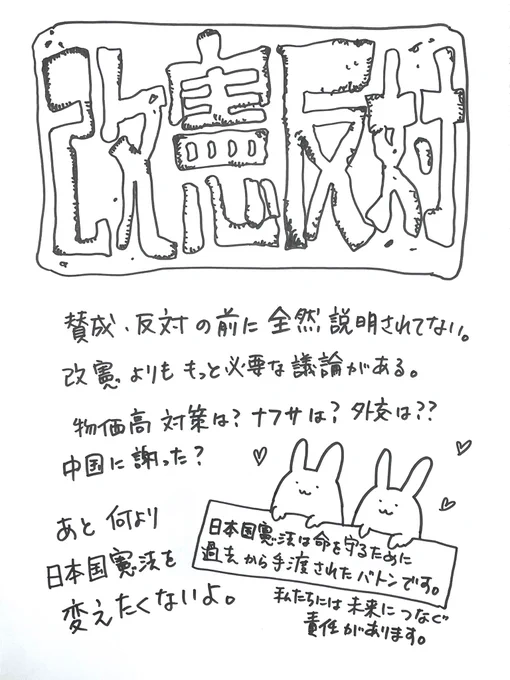 改憲反対
賛成、反対の前に全然説明されてない。
改憲よりももっと必要な議論がある。
物価高対策は?ナフサは?外交は??
中国に謝った?
あと何より
日本国憲法を
変えたくないよ。
日本国憲法は命を守るために
過去から手渡されたバトンです。
私たちには未来につなぐ
責任があります。